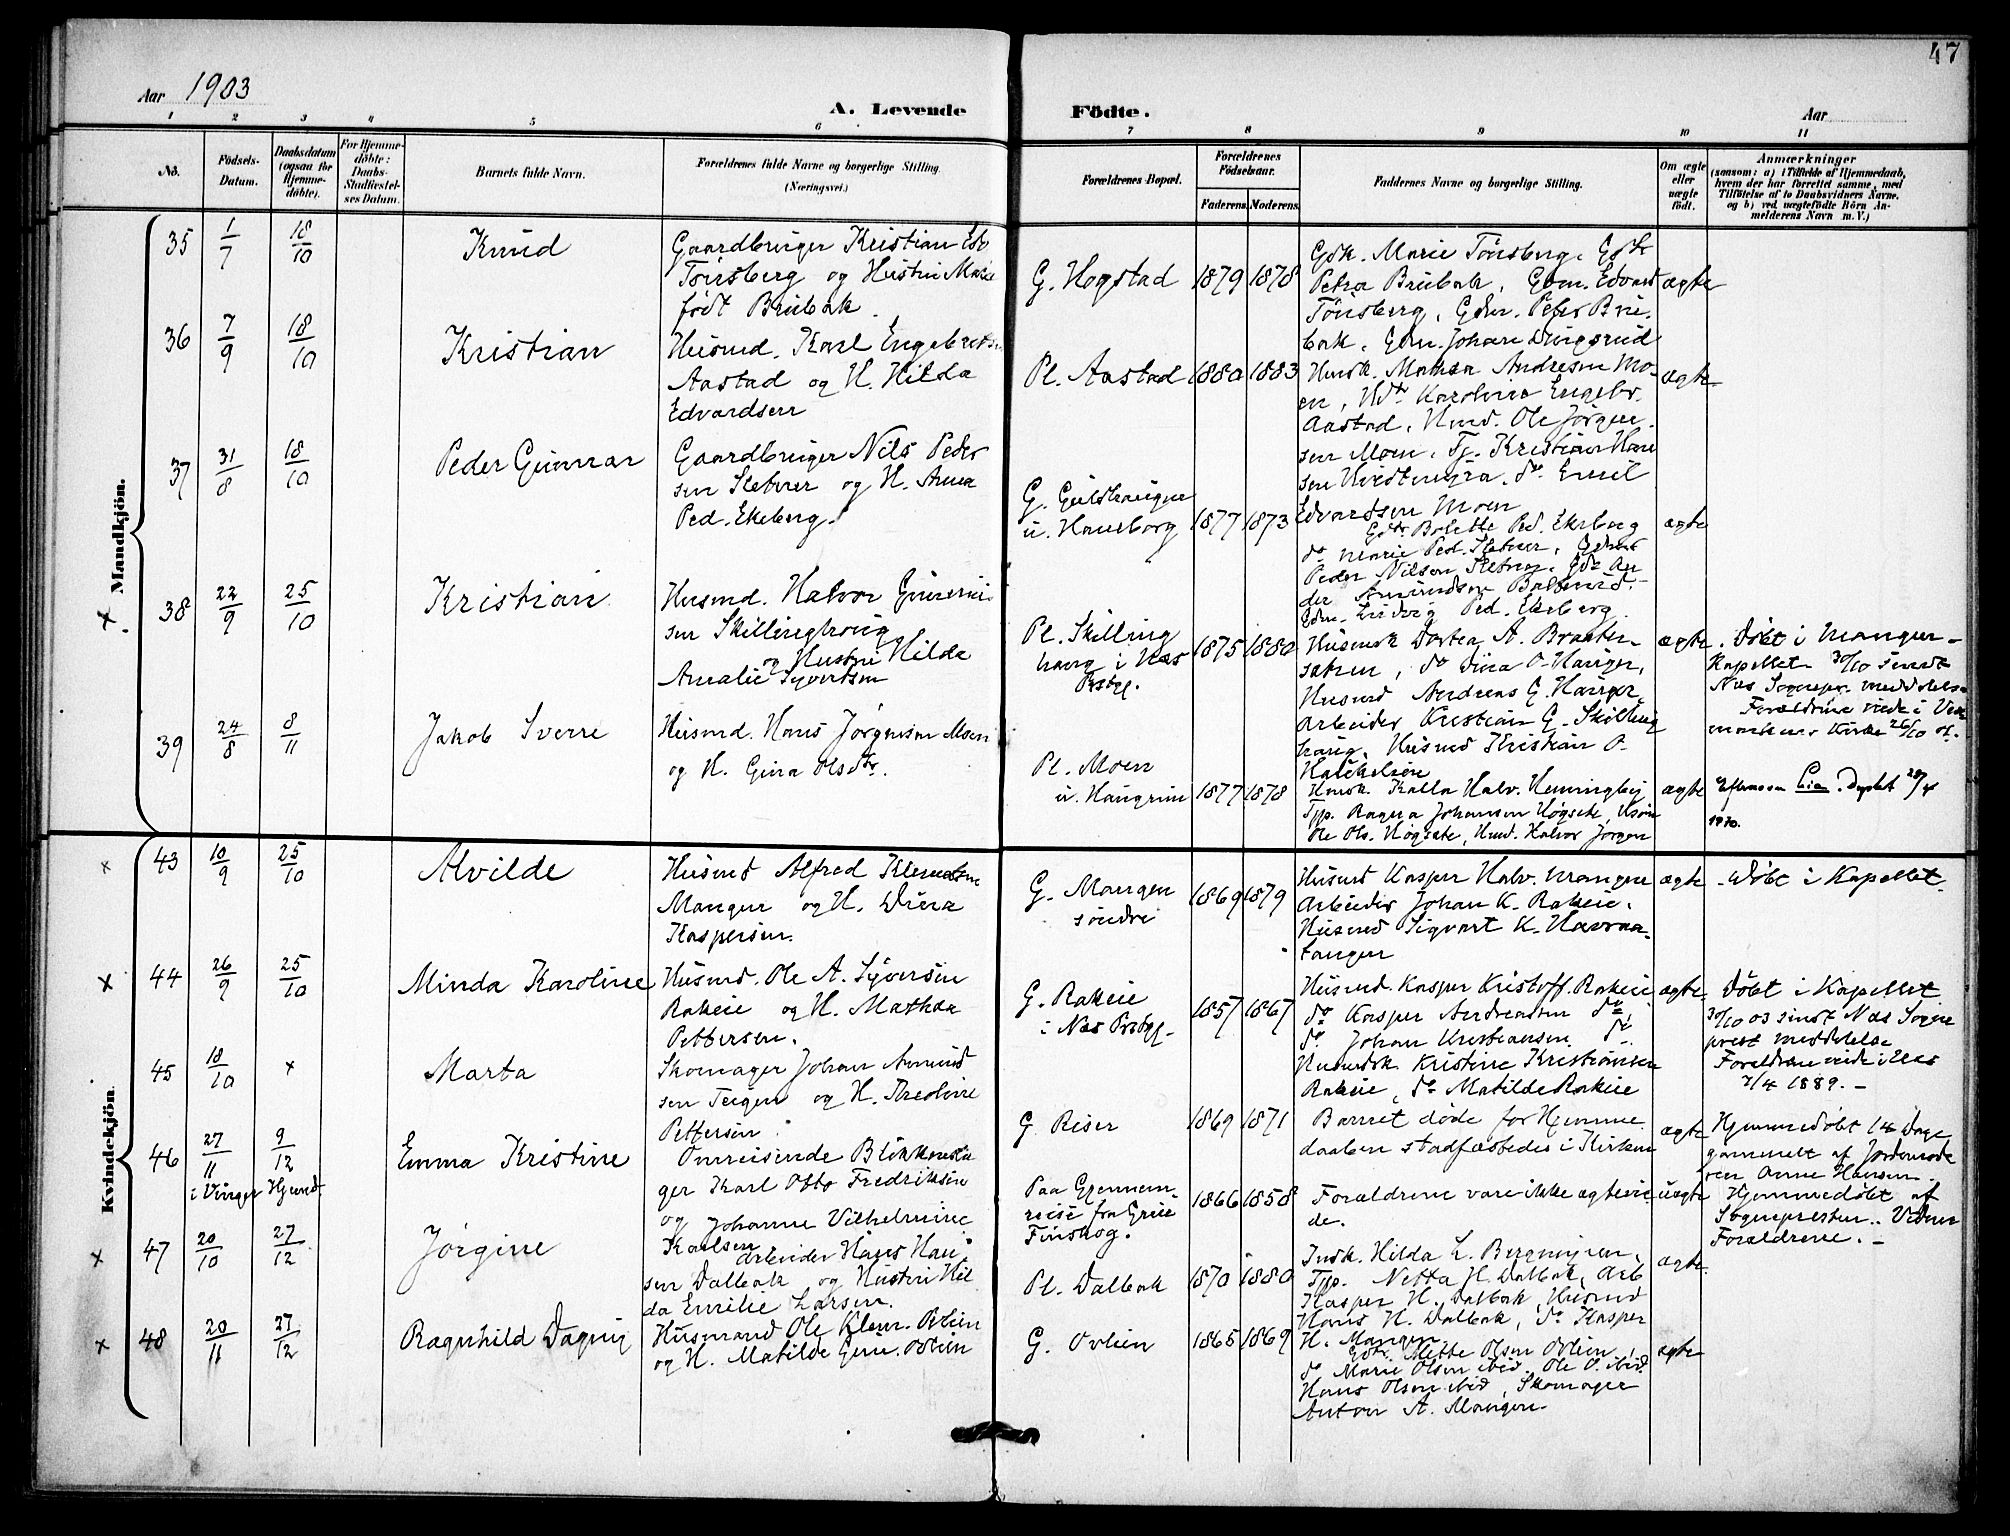 47
Aar 1903
A. Levende
Födte.
Aar
1 2 3 4 5 6 7 8 9 10 11
No.
Födsels-
Datum.
Daabsdatum
(ogsaa for
Hjemme-
döbte).
For Hjemme-
döbte:
Daabs-
Stadfæstel-
ses Datum.
Barnets fulde Navn.
Forældrenes fulde Navne og borgerlige Stilling.
(Næringsvei.)
Forældrenes Bopæl.
Forældrenes
Födselsaar.
Faderens. Moderens.
Faddernes Navne og borgerlige Stilling.
Om ægte
eller
uægte
födt.
Anmærkninger
(saasom: a) i Tilfælde af Hjemmedaab,
hvem der har forrettet samme, med
Tilföielse af to Daabsvidners Navne.
og b) ved uægtefödte Börn An-
melderens Navn m. V.)
Mandkjön.
35 1/7 18/10 Knud
Gaardbruger Kristian Edv
Tønsberg og Hustru Marie
født Brubak.
G. Hogstad 1879 1878
Gdk. Marie Tønsberg, Gdtr
Petra Brubak, Gbm. Edvard
Tønsberg, Gdm. Peter Bru-
bak, Gdm. Johan
ægte
36 7/9 18/10 Kristian
Husmd. Karl Engebretsn
Aastad og H. Hilda
Edvardsen
Pl. Aastad 1880 1883
Husk. Mathea Andresen Mo-
en, Karoline Engebr.
Aastad, Husmd. Ole Jörgen-
sen Moen, Tj. Kristian Han
sen do Emil
Edvardsen Moen
ægte
37 31/8 18/10 Peder Gunnar
Gaardbruger Nils Peder
sen Sletner og H. Anna
Ped. Ekeberg.
G. Gulshaugen
u. Haneborg 1877 1873
Gdtr. Bolette Ped. Ekeberg
do Marie Ped. Sletner,
Peder Nilsen Sletner,
Amundsen
Gdm. Ludvig Ped. Ekeberg
ægte
x 38 22/9 25/10 Kristian
Husmd. Halvor Gunerius
sen Skillinghaug
og Hustru Hilda
Amalie Syvertsen
Pl. Skilling
haug i Næs
Prstgj. 1875 1880
Husmsk Dortea A. Braaten
do Dina O.
Husmd Andreas G.
Arbeider Kristian G. Skilling
haug, Husmd Kristian O.
ægte
Døbt i Mangen-
Kapellet 30/10 sendt
Næs Sognepr. meddelelse
Forældrene viede i
Kirke 26/10 01.
39 24/8 8/11 Jakob Sverre
Husmd. Hans Jørgensen Moen
og H. Gina Olsdtr.
Pl. Moen
u. Haugrim 1877 1878
Husk. Kalla Halv. Henningby
Tjp. Ragna Johansen Høgsete,
Ole Ols. Høgsete, Husmd. Halvor Jörgen
ægte
Efternavn Lien. Døpt 28/4
1970.
Kvindekjön
x 43 10/9 25/10 Alvilde
Husmd Alfred Klemetsen
Mangen og H. Dina
Kaspersen.
G. Mangen
søndre 1869 1879
Husmd Kasper Halv. Mangen
Arbeider Johan K. Rakeie,
Husmd Sigvart K. Havraa-
tangen
ægte
Døbt i Kapellet.
x 44 26/9 25/10 Minda Karoline
Husmd. Ole A. Syversen
Rakeie og H. Mathea
Pettersen.
G. Rakeie
i Næs Prstgj. 1857 1867
Husmd. Kasper Kristoff. Rakeie
do Kasper Andreasen do
do Johan Kristiansen do
Husmdsk Kristine Kristiansen
Rakeie, do Matilde Rakeie
ægte
Døbt i Kapellet
30/10 03 sendt Næs Sogne
prest meddelelse
Forældrene viede i Næs
7/4 1889. –
45 18/10 x Marta
Skomager Johan Amund
sen Teigen og H. Theoline
Pettersen
G. Riser 1869 1871
Barnet døde før Hjemme
daaben stadfæstedes i Kirken
ægte
Hjemmedøbt 14 Dage
gammelt af Jordemode
ren Anne Hansen.
46 27/11 9/12 Emma Kristine
i Vinger Hjemd.
Omreisende Blikkensla
ger Karl Otto Fredriksen
og Johanne Vilhelmine
Karlsen
Paa Gjennem
reise fra Grue
Finskog. 1866 1858
Forældrene vare ikke ægtevie
de.
uægte
Hjemmedøbt af
Sognepresten. Vidner
Forældrene. –
x 47 20/10 27/12 Jørgine
Arbeider Hans Han
sen Dalbak og Hustru Hil
da Emilie Larsen.
Pl. Dalbak 1870 1880
Indk. Hilda L. Bergmyren,
Tjp. Netta H. Dalbak, Arb
Kasper H. Dalbak, Husmd
Hans H. Dalbak, do Kasper
H. Mangen
ægte
x 48 20/11 27/12 Ragnhild Dagny
Husmand Ole Klem. Ovlien
og H. Matilde Gun. Ovlien
G. Ovlien 1865 1869
Gdtr. Mette Olsen Ovlien,
do Marie Olsen ibid. Ole O. ibid.
Hans Olsen ibid, Skomager
Anton A. Mangen.
ægte